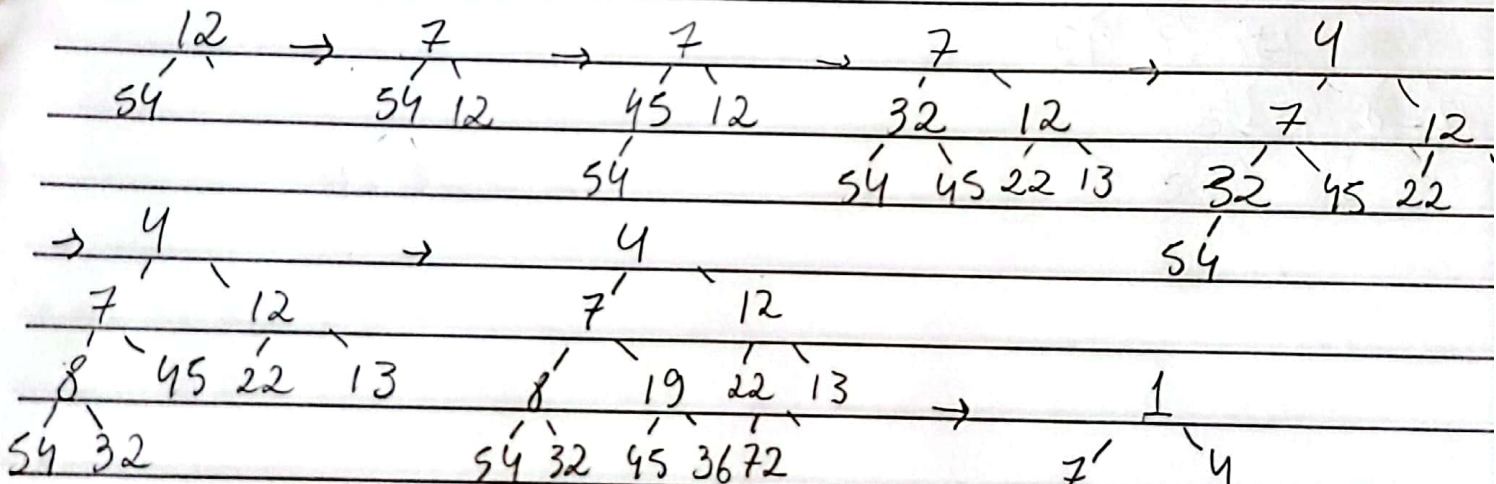 12 → 7 → 7 → 7 → 4
54 54 12 45 12 32 12 7 12
54 54 45 22 13 32 45 22
→ 4 → 4 54
7 12 7 12
8 45 22 13 8 19 22 13 → 1
54 32 54 32 45 36 72 7 4